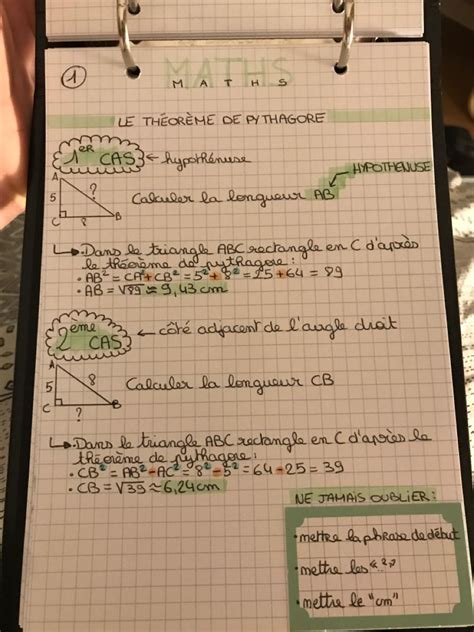 1
MATHS
MATHS
LE THÉORÈME DE PYTHAGORE
1ER CAS ← hypothénuse
HYPOTHENUSE
A
5 ?
C 8 B
Calculer la longueur AB
↳ Dans le triangle ABC rectangle en C d'après
le théorème de pythagore :
• AB² = CA² + CB² = 5² + 8² = 25 + 64 = 89
• AB = √89 ≈ 9,43 cm
2ème CAS ← côté adjacent de l'angle droit
A
5 8
C ? B
Calculer la longueur CB
↳ Dans le triangle ABC rectangle en C d'après le
théorème de pythagore :
• CB² = AB² - AC² = 8² - 5² = 64 - 25 = 39
• CB = √39 ≈ 6,24 cm
NE JAMAIS OUBLIER :
• mettre la phrase de début
• mettre les "²"
• mettre le "cm"